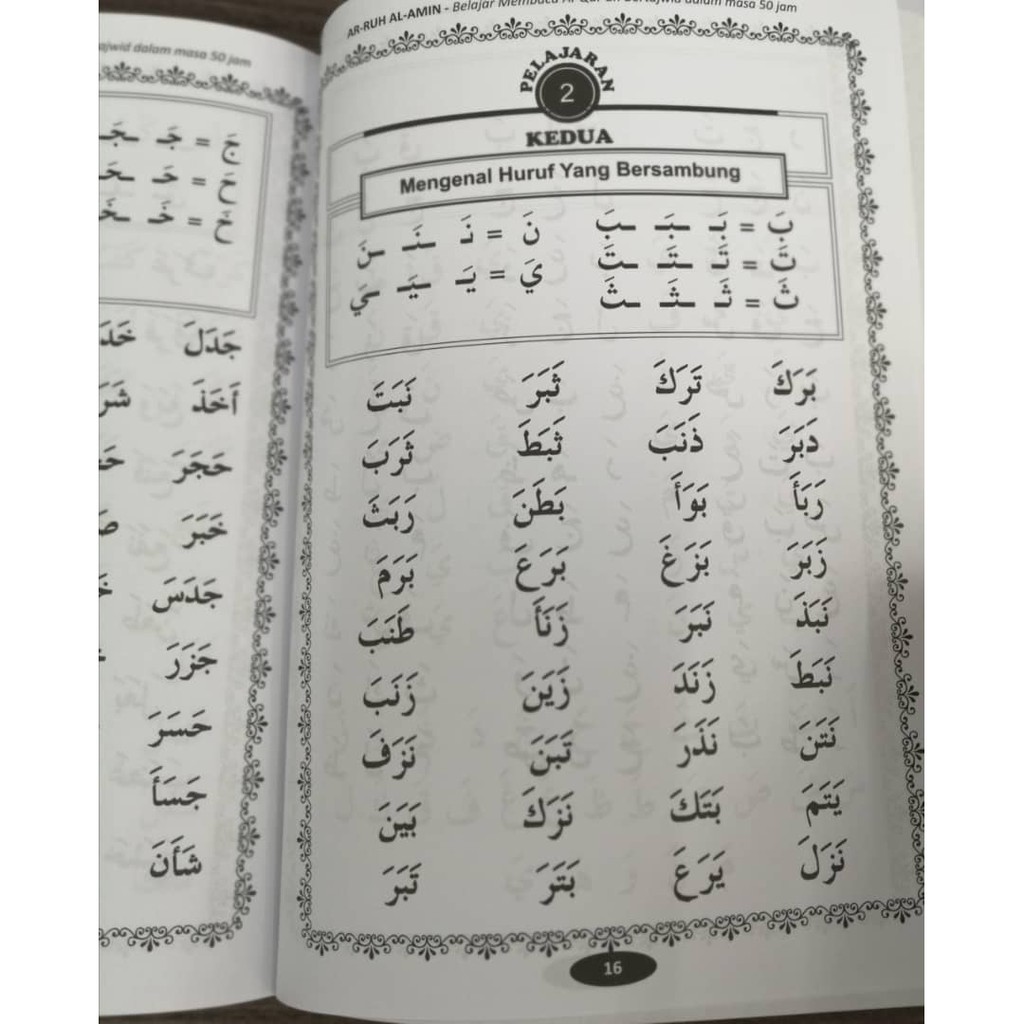 AR-RUH AL-AMIN - Belajar Membaca dalam masa 50 jam
PELAJARAN
2
KEDUA
Mengenal Huruf Yang Bersambung
بَ = بَـ ـبَـ ـبَ نَ = نَـ ـنَـ ـنَ
تَ = تَـ ـتَـ ـتَ يَ = يَـ ـيَـ ـيَ
ثَ = ثَـ ـثَـ ـثَ
بَرَكَ تَرَكَ ثَبَرَ نَبَتَ
دَبَرَ ذَنَبَ ثَبَطَ ثَرَبَ
رَبَأَ بَوَأَ بَطَنَ رَبَثَ
زَبَرَ بَزَغَ بَرَعَ بَرَمَ
نَبَذَ نَبَرَ زَنَأَ طَنَبَ
نَبَطَ زَنَدَ زَيَنَ زَنَبَ
نَتَنَ نَذَرَ تَبَنَ نَزَفَ
يَتَمَ بَتَكَ نَزَكَ بَيَنَ
نَزَلَ يَرَعَ بَتَرَ تَبَرَ
16
dalam masa 50 jam
جَ = جَـ ـجَـ
حَ = حَـ ـحَـ
خَ = خَـ ـخَـ
جَدَلَ
اَخَذَ
حَجَرَ
خَبَرَ
جَدَسَ
جَزَرَ
حَسَرَ
جَسَأَ
شَأَنَ